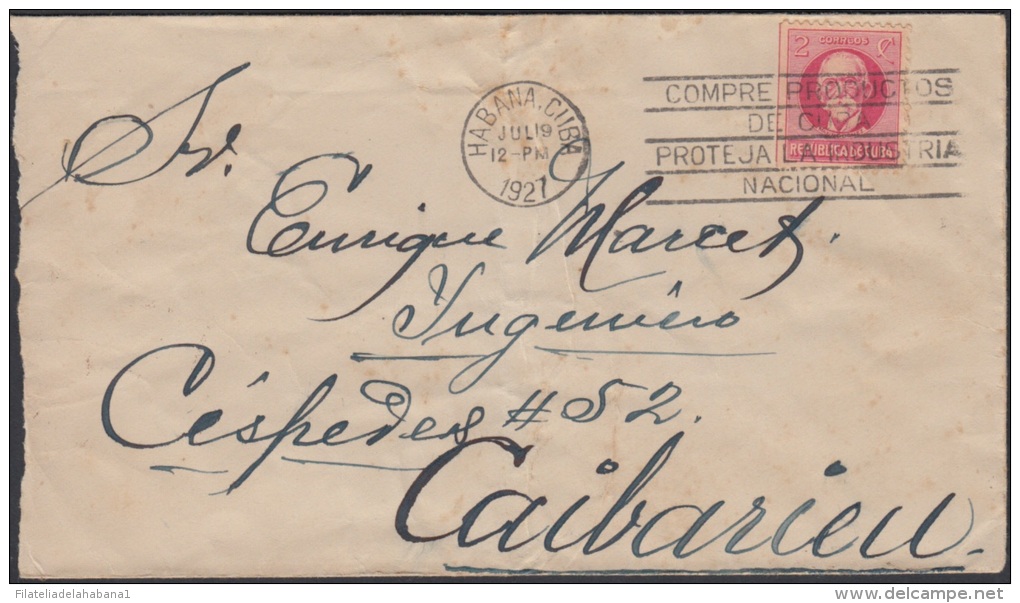 2 CORREOS ¢
REPUBLICA DE CUBA
HABANA, CUBA
JUL 19
12-PM
1927
COMPRE PRODUCTOS
DE CUBA
PROTEJA LA INDUSTRIA
NACIONAL
Sr.
Enrique Marcet.
Ingeniero
Céspedes # 52.
Caibarien.
Filateliadelahabana1
delcampe.net